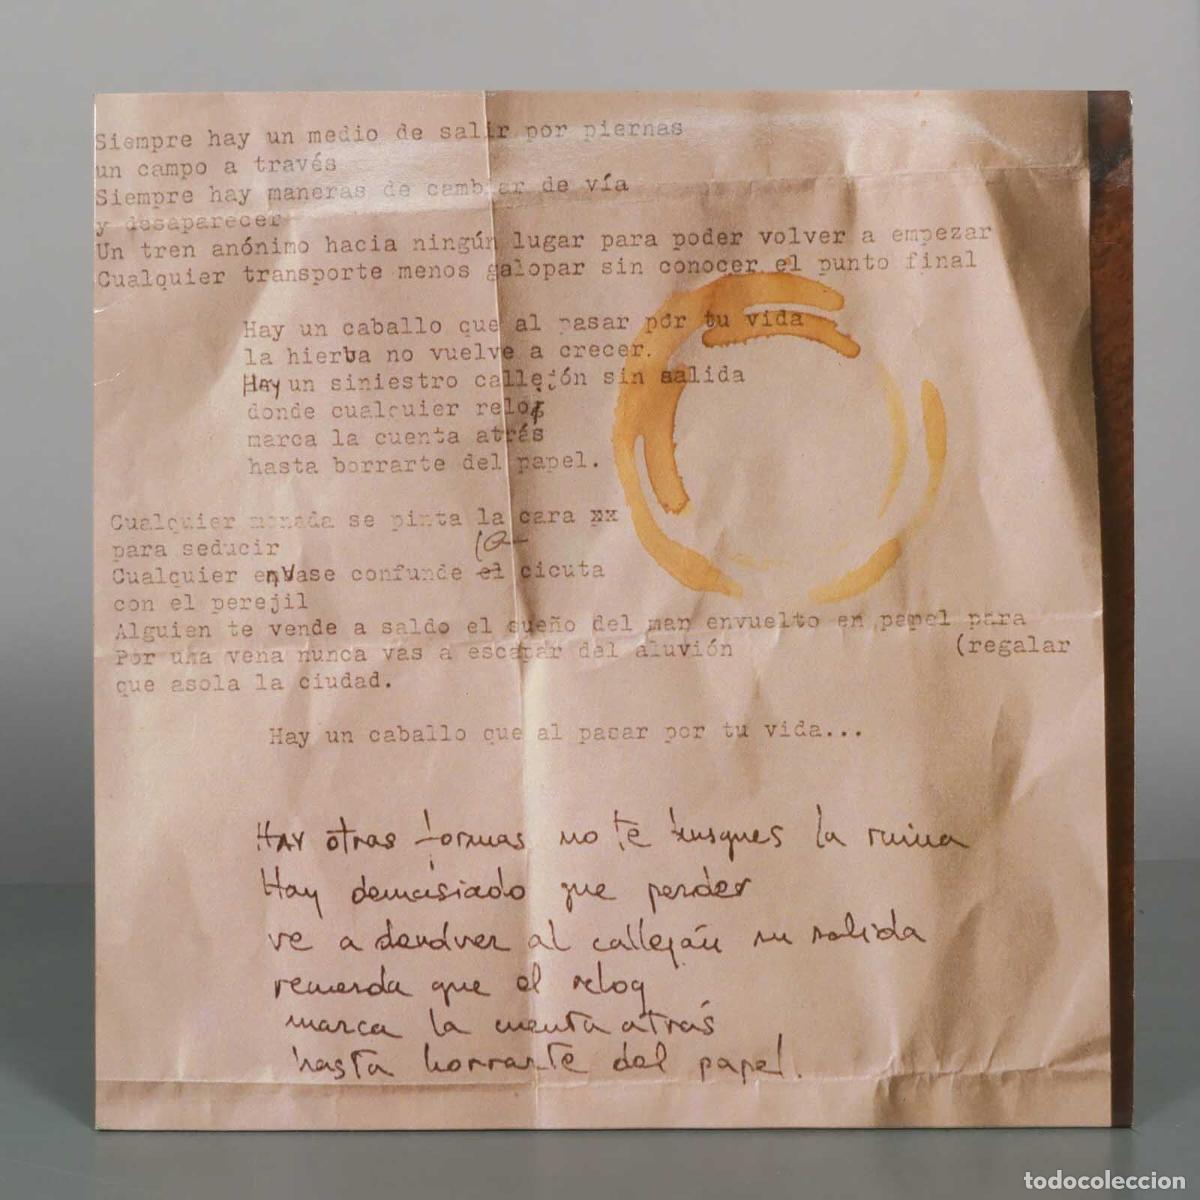 Siempre hay un medio de salir por piernas
un campo a través
Siempre hay maneras de cambiar de vía
y desaparecer
Un tren anónimo hacia ningún lugar para poder volver a empezar
Cualquier transporte menos galopar sin conocer el punto final
Hay un caballo que al pasar por tu vida
la hierba no vuelve a crecer.
Hay un siniestro callejón sin salida
donde cualquier reloj
marca la cuenta atrás
hasta borrarte del papel.
Cualquier monada se pinta la cara xx
para seducir
la
Cualquier envase confunde el cicuta
con el perejil
Alguien te vende a saldo el sueño del man envuelto en papel para
(regalar
Por una vena nunca vas a escapar del aluvión
que asola la ciudad.
Hay un caballo que al pasar por tu vida...
Hay otras formas no te busques la ruina
Hay demasiado que perder
ve a devolver al callejón su salida
recuerda que el reloj
marca la cuenta atrás
hasta borrarte del papel.
todocoleccion